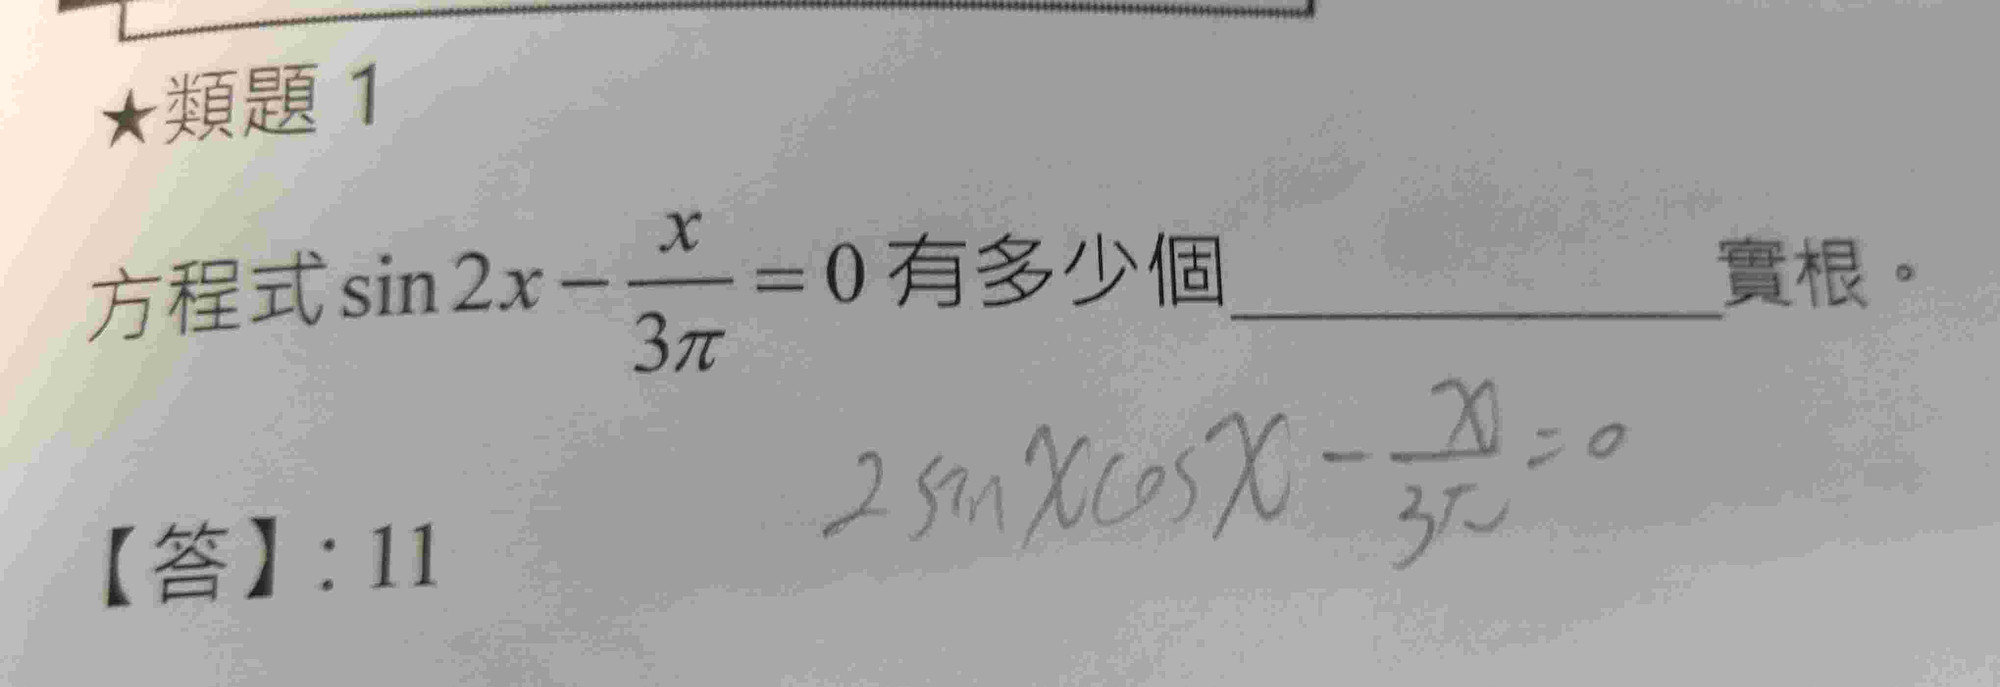 ★類題 1
方程式 sin 2x − x/3π = 0 有多少個__________實根。
2 sin x cos x − x/3π = 0
【答】: 11